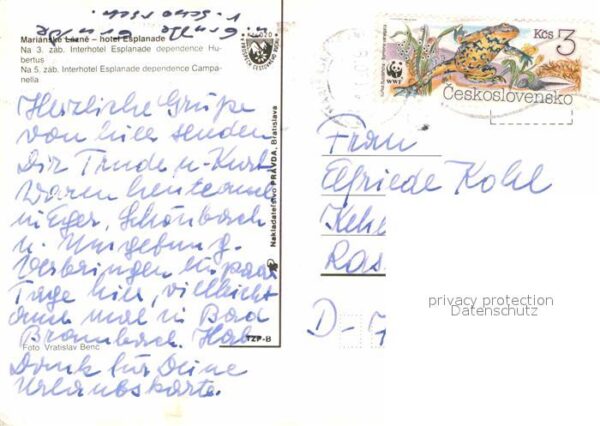 Mariánské Lázně – hotel Esplanade
Na 3. záb. Interhotel Esplanade dependence Hu-
bertus
Na 5. záb. Interhotel Esplanade dependence Campa-
nella
Herzliche Grüße
von hier senden
Dir Trude u. Kurt
Waren heute auch
in Eger, Schönbach
u. Umgebung.
Verbringen ein paar
Tage hier, vielleicht
auch mal in Bad
Brambach. Hab
Dank für Deine
Urlaubskarte.
Foto Vratislav Benc
Nakladatelství PRAVDA, Bratislava
TZP-B
Kčs 3
WWF
Československo
Frau
Elfriede Kohl
Kehe
Ras
D-
privacy protection
Datenschutz